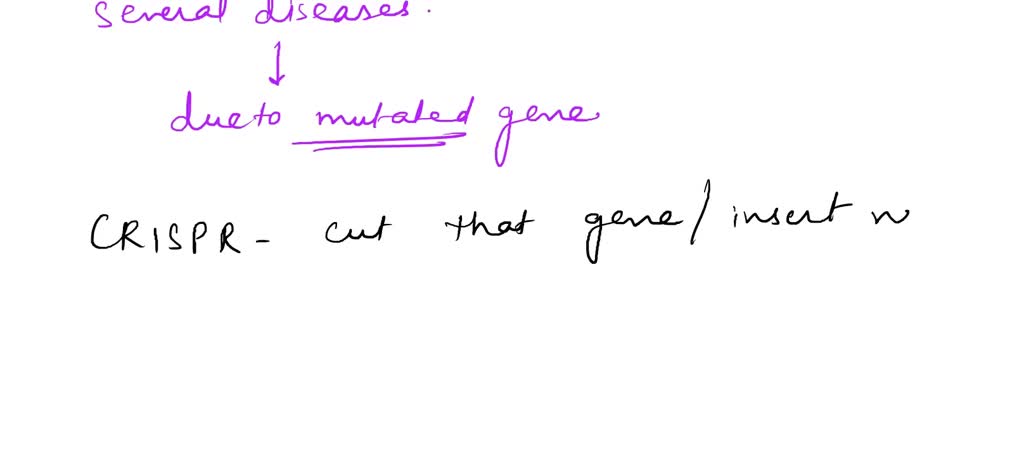 several diseases.
↓
due to mutated gene
CRISPR - cut that gene/ insert n